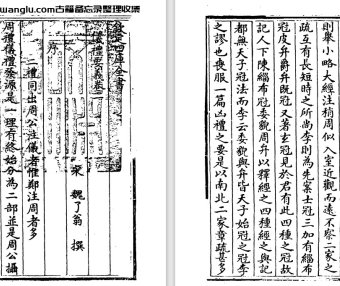 wanglu.com古籍备忘录整理收录
欽定四庫全書
儀禮要義卷一
宋 魏了翁 撰
二禮同出周公注儀者惟鄭注周者多
周禮儀禮發源是一理有終始分為二部並是周公攝
則舉小略大經注稍周似入室近觀而遠不察二家之
疏互有長短時之所尚李則為先案士冠三加有緇布
冠皮弁爵弁既冠又著玄冠見於君有此四種之冠故
記人下陳緇布冠委貌周弁以釋經之四種經之與記
都無天子冠法而李云委貌與弁皆天子始冠之冠李
之謬也喪服一篇凶禮之要是以南北二家章疏甚多